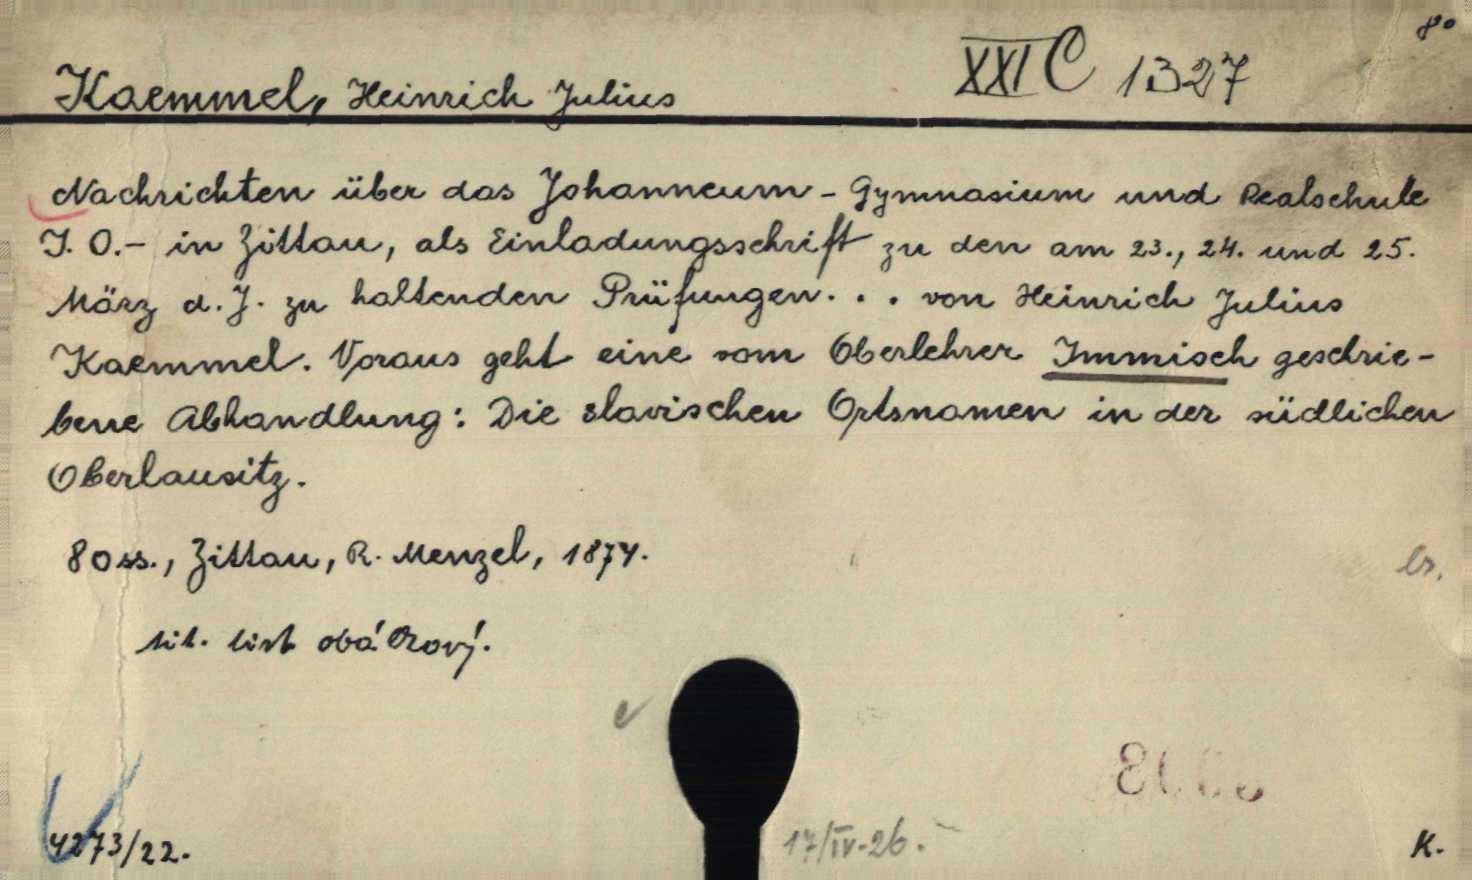 8°
Kaemmel, Heinrich Julius XXI C 1327
Nachrichten über das Johanneum - Gymnasium und Realschule
I. O. - in Zittau, als Einladungsschrift zu den am 23., 24. und 25.
März d. J. zu haltenden Prüfungen. . . von Heinrich Julius
Kaemmel. Voraus geht eine vom Oberlehrer Immisch geschrie-
bene Abhandlung: Die slavischen Ortsnamen in der südlichen
Oberlausitz.
80 ss., Zittau, R. Menzel, 1874.
tit. list obálkový.
4273/22.
17/IV-26.
K.